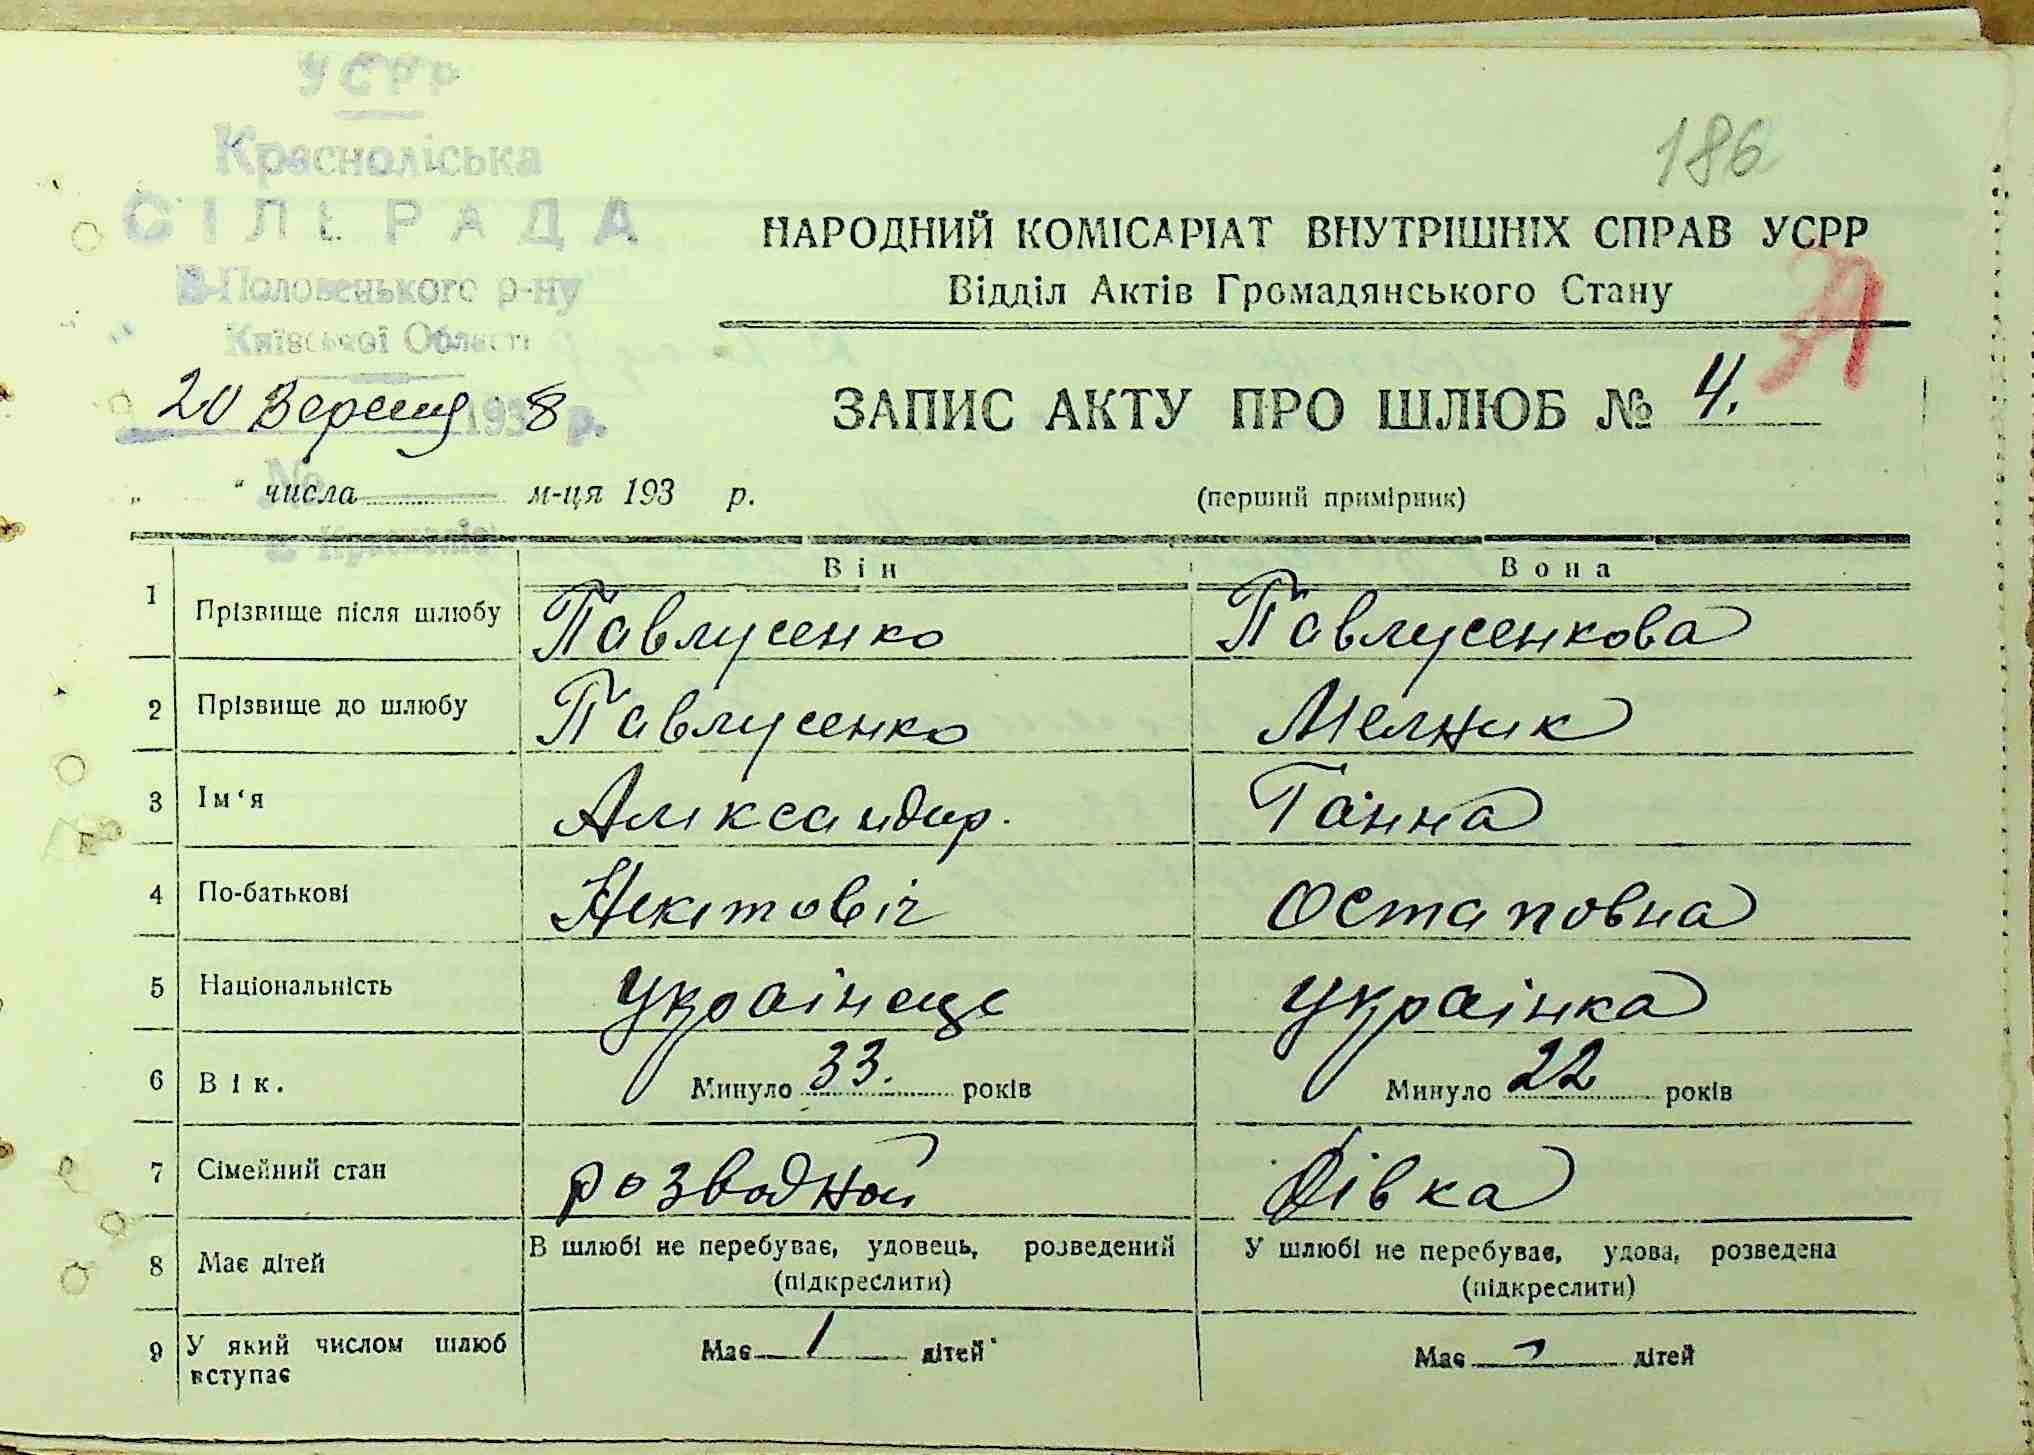 УСРР
Красноліська
СІЛЬРАДА
В-Половенького р-ну
Київської Области
20 Вересня 1938 р.
№
186
НАРОДНИЙ КОМІСАРІАТ ВНУТРІШНІХ СПРАВ УСРР
Відділ Актів Громадянського Стану
ЗАПИС АКТУ ПРО ШЛЮБ № 4.
„ “ числа м-ця 193 р.
(перший примірник)
Він Вона
1 Прізвище після шлюбу Павлусенко Павлусенкова
2 Прізвище до шлюбу Павлусенко Мелник
3 Ім‘я Александр. Ганна
4 По-батькові Остаповна
5 Національність Украінец Украінка
6 Вік. Минуло 33. років Минуло 22 років
7 Сімейний стан розводной Дівка
8 Має дітей В шлюбі не перебуває, удовець, розведений У шлюбі не перебуває, удова, розведена
(підкреслити) (підкреслити)
9 У який числом шлюб вступає Має 1 дітей Має - дітей